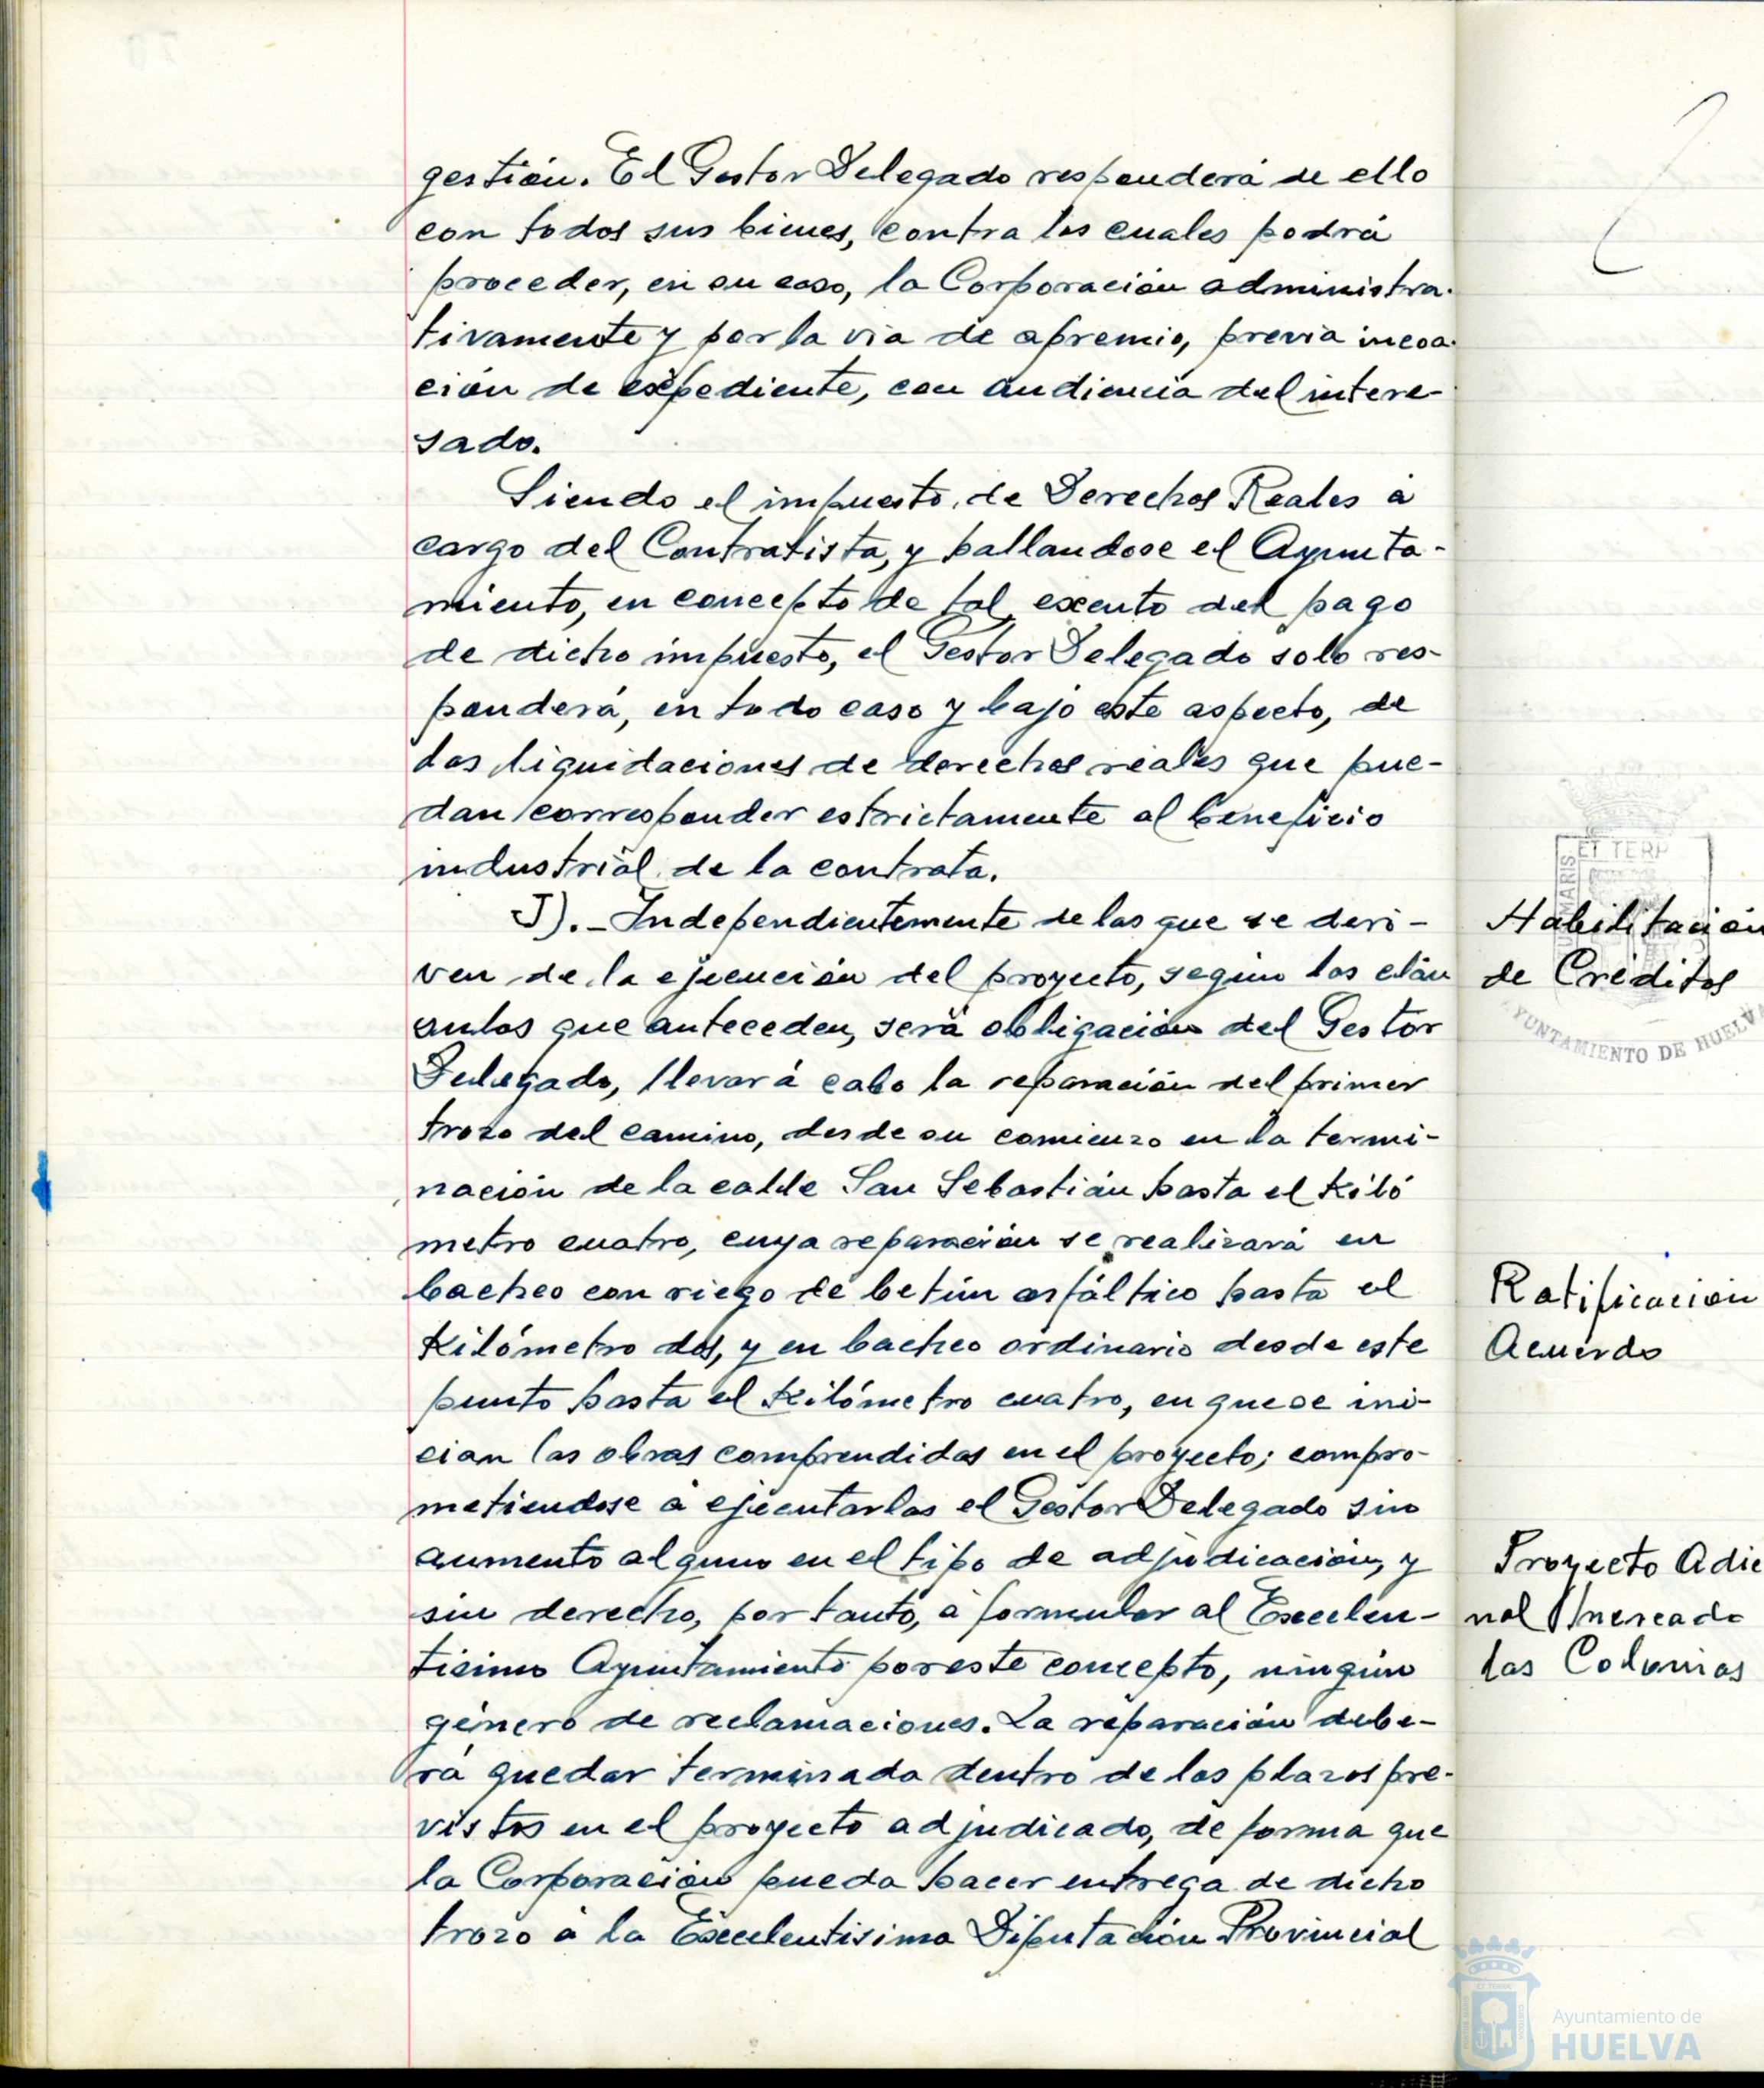 gestión. El Gestor Delegado responderá de ello
con todos sus bienes, contra los cuales podrá
proceder, en su caso, la Corporación administra-
tivamente y por la via de apremio, previa incoa-
ción de expediente, con audiencia del intere-
sado.
Siendo el impuesto de Derechos Reales a
cargo del Contratista, y hallandose el Ayunta-
miento, en concepto de tal, exento del pago
de dicho impuesto, el Gestor Delegado solo res-
ponderá, en todo caso y bajo este aspecto, de
las liquidaciones de derechos reales que pue-
dan corresponder estrictamente al beneficio
industrial de la contrata.
J).- Independientemente de las que se deri-
ven de la ejecución del proyecto, segun las cláu
sulas que anteceden, será obligación del Gestor
Delegado, llevar á cabo la reparación del primer
trozo del camino, desde su comienzo en la termi-
nación de la calle San Sebastián hasta el Kiló
metro cuatro, cuya reparación se realizará en
bacheo con riego de betún asfáltico hasta el
Kilómetro dos, y en bacheo ordinario desde este
punto hasta el Kilómetro cuatro, en que se ini-
cian las obras comprendidas en el proyecto; compro-
metiendose á ejecutarlas el Gestor Delegado sin
aumento alguno en el tipo de adjudicación, y
sin derecho, por tanto, á formular al Excelen-
tisimo Ayuntamiento por este concepto, ningún
género de reclamaciones. La reparación debe-
rá quedar terminada dentro de los plazos pre-
vistos en el proyecto adjudicado, de forma que
la Corporación pueda hacer entrega de dicho
trozo a la Excelentisima Diputación Provincial
Habilitación
de Créditos
ET TERR
MARIS
AYUNTAMIENTO DE HUELVA
Ratificación
Acuerdo
Proyecto Adic
nal Mercado
las Colonias
Ayuntamiento de
HUELVA